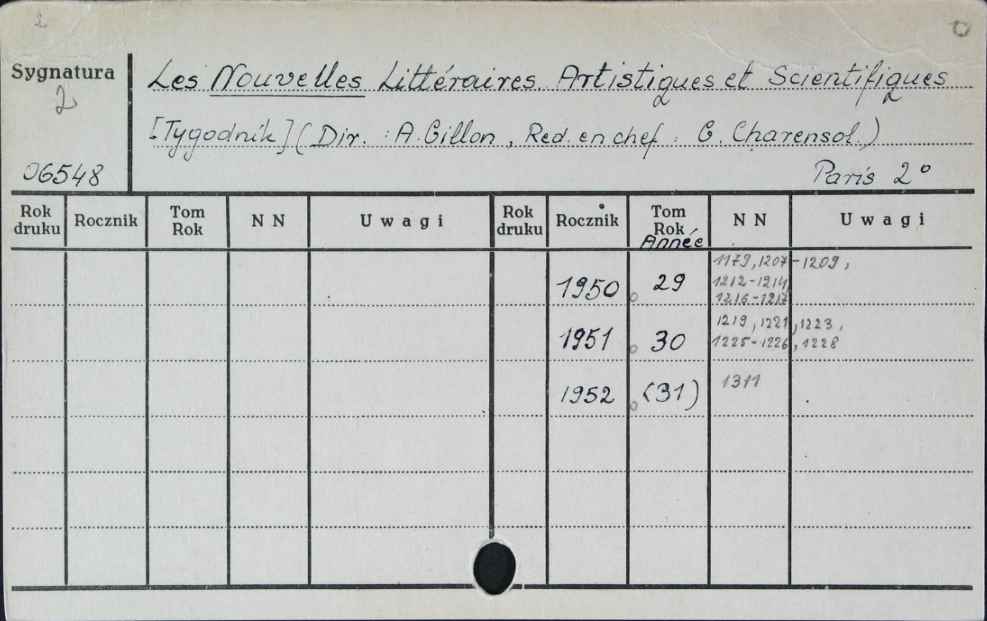 2
Sygnatura
2
06548
Les Nouvelles Littéraires. Artistiques et Scientifiques
[Tygodnik] (Dir. : A. Gillon, Red. en chef : G. Charensol.)
Paris 2°
Rok druku Rocznik Tom Rok NN Uwagi Rok druku Rocznik Tom Rok Année NN Uwagi
1950 29 1179, 1207-1209,
1212-1214
1216-1217
1951 30 1219, 1221, 1223,
1225-1226, 1228
1952 (31) 1311